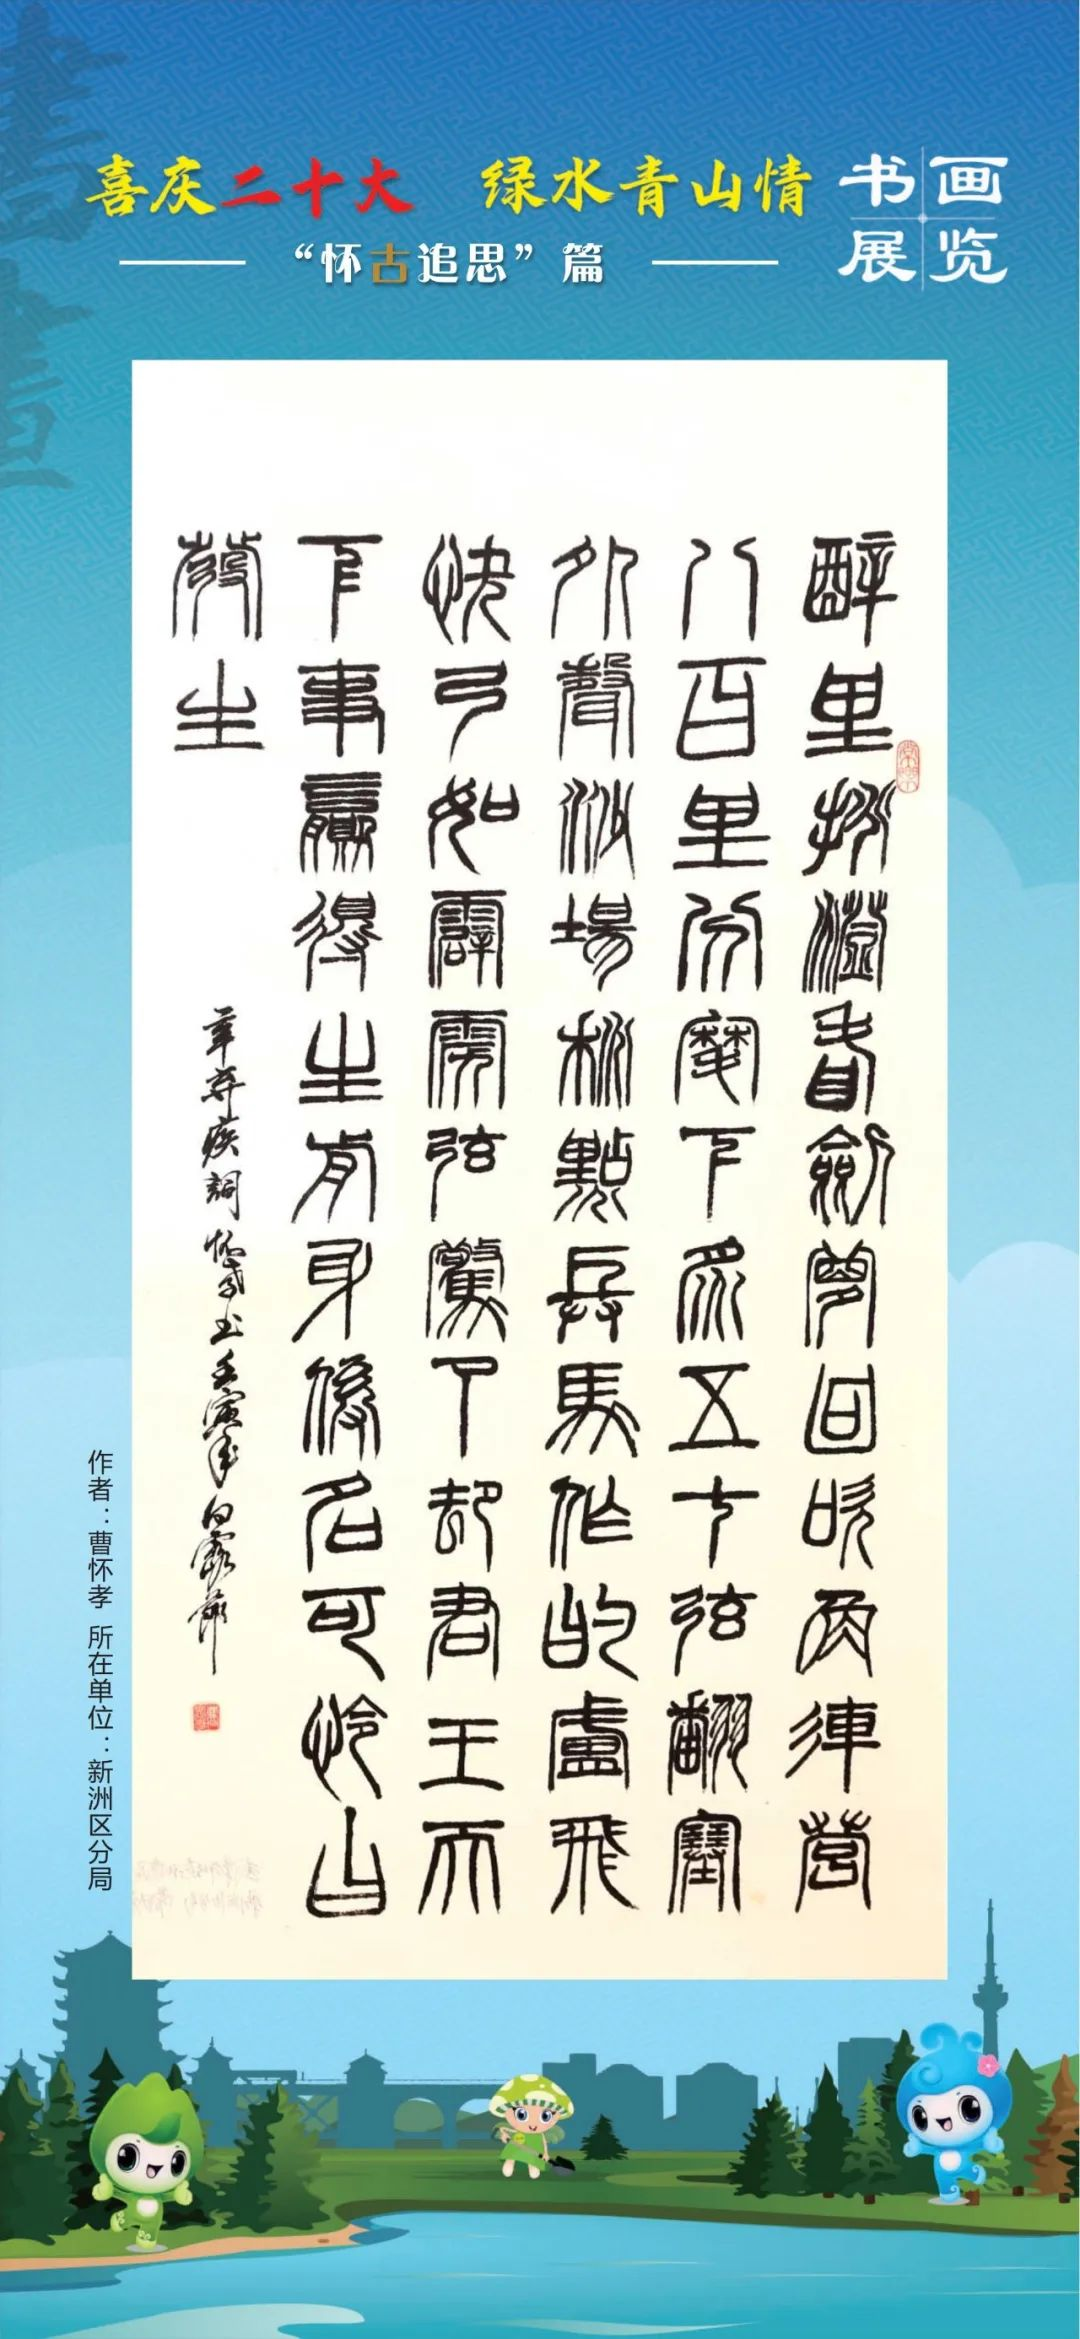 喜庆二十大 绿水青山情
书画展览
“怀古追思”篇
醉里挑燈看劍夢回吹角連營
八百里分麾下炙五十弦翻塞
外聲沙場秋點兵馬作的盧飛
快弓如霹靂弦驚了却君王天
下事贏得生前身後名可憐白
發生
辛弃疾詞懷孝书壬寅年白露節
作者：曹怀孝 所在单位：新洲区分局